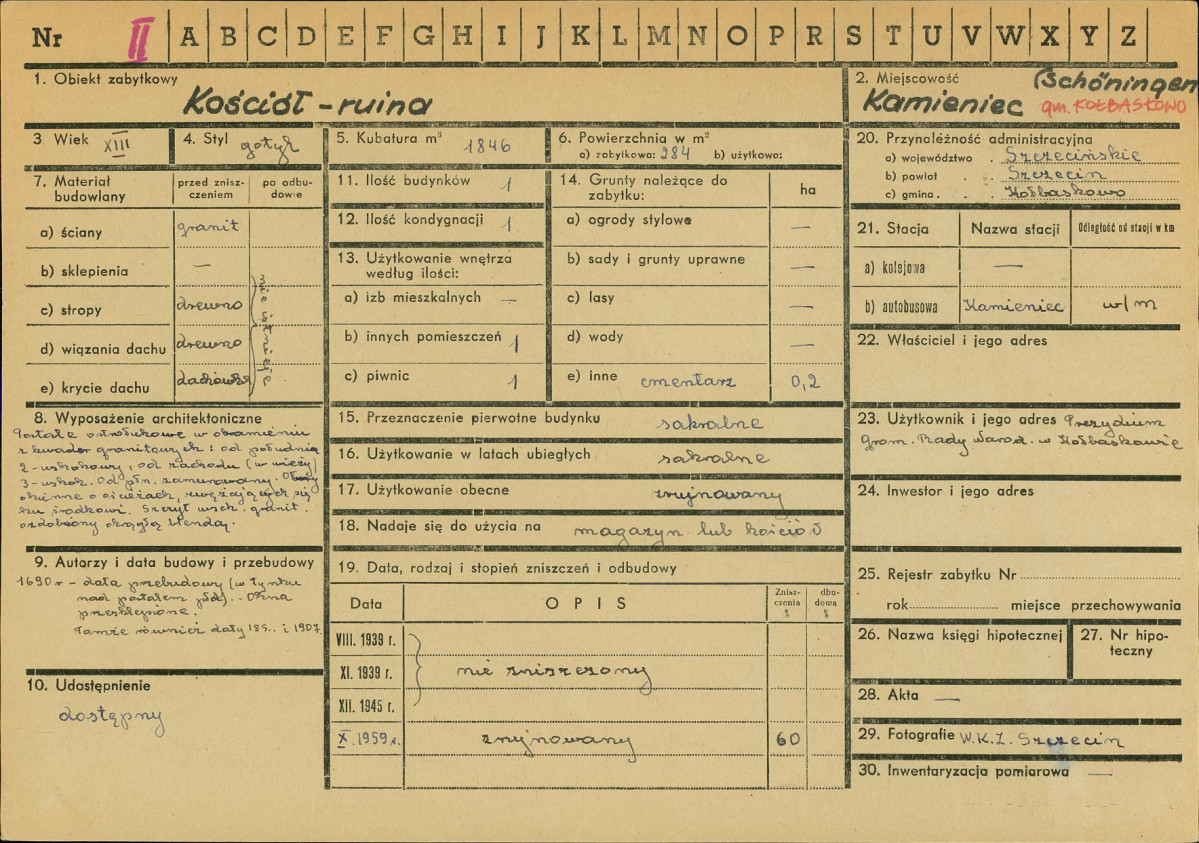 Nr II A B C D E F G H I J K L M N O P R S T U V W X Y Z
1. Obiekt zabytkowy
Kościół - ruina
2. Miejscowość (Schöningen
Kamieniec gm. KOŁBASKOWO
3. Wiek XIII
4. Styl gotyk
5. Kubatura m³ 1846
6. Powierzchnia w m²
a) zabytkowa: 284 b) użytkowa:
7. Materiał budowlany
przed zniszczeniem
po odbudowie
a) ściany granit
b) sklepienia —
c) stropy drewno
d) wiązania dachu drewno
e) krycie dachu dachówka
nie istnieje
8. Wyposażenie architektoniczne
Portale ostrołukowe w obramieniu
z kwader granitowych: od południa
2-uskokowy, od zachodu (w wieży)
3-uskok. Od płn. zamurowany. Otwory
okienne o ościeżach, zwężających się
ku środkowi. Szczyt wsch. granit.
ozdobiony okrągłą blendą.
9. Autorzy i data budowy i przebudowy
1690 r - data przebudowy (w tynku
nad portalem płd). Okna
przesklepione.
Tamże również daty 18.. i 1907
10. Udostępnienie
dostępny
11. Ilość budynków 1
12. Ilość kondygnacji 1
13. Użytkowanie wnętrza
według ilości:
a) izb mieszkalnych —
b) innych pomieszczeń 1
c) piwnic 1
14. Grunty należące do
zabytku: ha
a) ogrody stylowe —
b) sady i grunty uprawne —
c) lasy —
d) wody —
e) inne cmentarz 0,2
15. Przeznaczenie pierwotne budynku sakralne
16. Użytkowanie w latach ubiegłych sakralne
17. Użytkowanie obecne zrujnowany
18. Nadaje się do użycia na magazyn lub kościół
19. Data, rodzaj i stopień zniszczeń i odbudowy
Data OPIS Zniszczenia % dbudowa %
VIII. 1939 r.
XI. 1939 r. nie zniszczony
XII. 1945 r.
X. 1959 r. zrujnowany 60
20. Przynależność administracyjna
a) województwo . Szczecińskie
b) powiat . . Szczecin
c) gmina . . . Kołbaskowo
21. Stacja Nazwa stacji Odległość od stacji w km
a) kolejowa —
b) autobusowa Kamieniec w/m
22. Właściciel i jego adres
23. Użytkownik i jego adres Prezydium
Grom. Rady Narod. w Kołbaskowie
24. Inwestor i jego adres
25. Rejestr zabytku Nr
rok miejsce przechowywania
26. Nazwa księgi hipotecznej
27. Nr hipoteczny
28. Akta —
29. Fotografie W.K.Z. Szczecin
30. Inwentaryzacja pomiarowa —